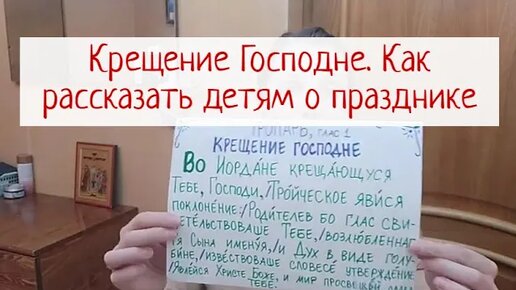 Крещение Господне. Как
рассказать детям о празднике
ТРОПАРЬ, ГЛАС 1
КРЕЩЕНИЕ ГОСПОДНЕ
ВО ИОРДА́НЕ КРЕЩА́ЮЩУСЯ
ТЕБЕ́, ГО́СПОДИ,/ТРО́ЙЧЕСКОЕ ЯВИ́СЯ
ПОКЛОНЕ́НИЕ:/РОДИ́ТЕЛЕВ БО ГЛАС СВИ-
ДЕ́ТЕЛЬСТВОВАШЕ ТЕБЕ́,/ВОЗЛЮ́БЛЕННАГ
ТЯ СЫ́НА ИМЕНУ́Я,/И ДУХ В ВИ́ДЕ ГОЛУ-
БИ́НЕ,/ИЗВЕ́СТВОВАШЕ СЛОВЕСЕ́ УТВЕРЖДЕ́НИЕ
/ЯВЛЕ́ЙСЯ ХРИСТЕ́ БО́ЖЕ, И МИР ПРОСВЕЩЕ́Й
ТЕБЕ́